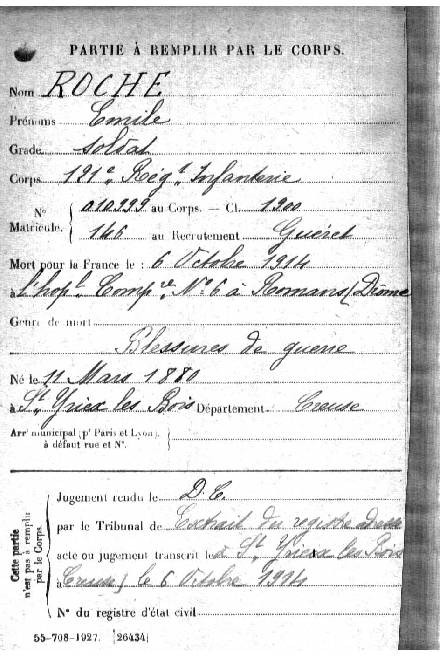 PARTIE À REMPLIR PAR LE CORPS.
Nom ROCHE
Prénoms Emile
Grade soldat
Corps 121e Régt Infanterie
N° Matricule. 010999 au Corps. — Cl. 1900
146 au Recrutement Guéret
Mort pour la France le : 6 Octobre 1914
à l'hopl Compre N° 6 à Romans (Drôme
Genre de mort
Blessures de guerre
Né le 11 Mars 1880
à St Yriex les Bois Département Creuse
Arrt municipal (pr Paris et Lyon),
à défaut rue et N°.
Cette partie n'est pas à remplir par le Corps.
Jugement rendu le D.C.
par le Tribunal de Extrait du registre
acte ou jugement transcrit le à St Yriex les Bois
à Creuse) le 6 Octobre 1914
N° du registre d'état civil
55-708-1927. [26434]